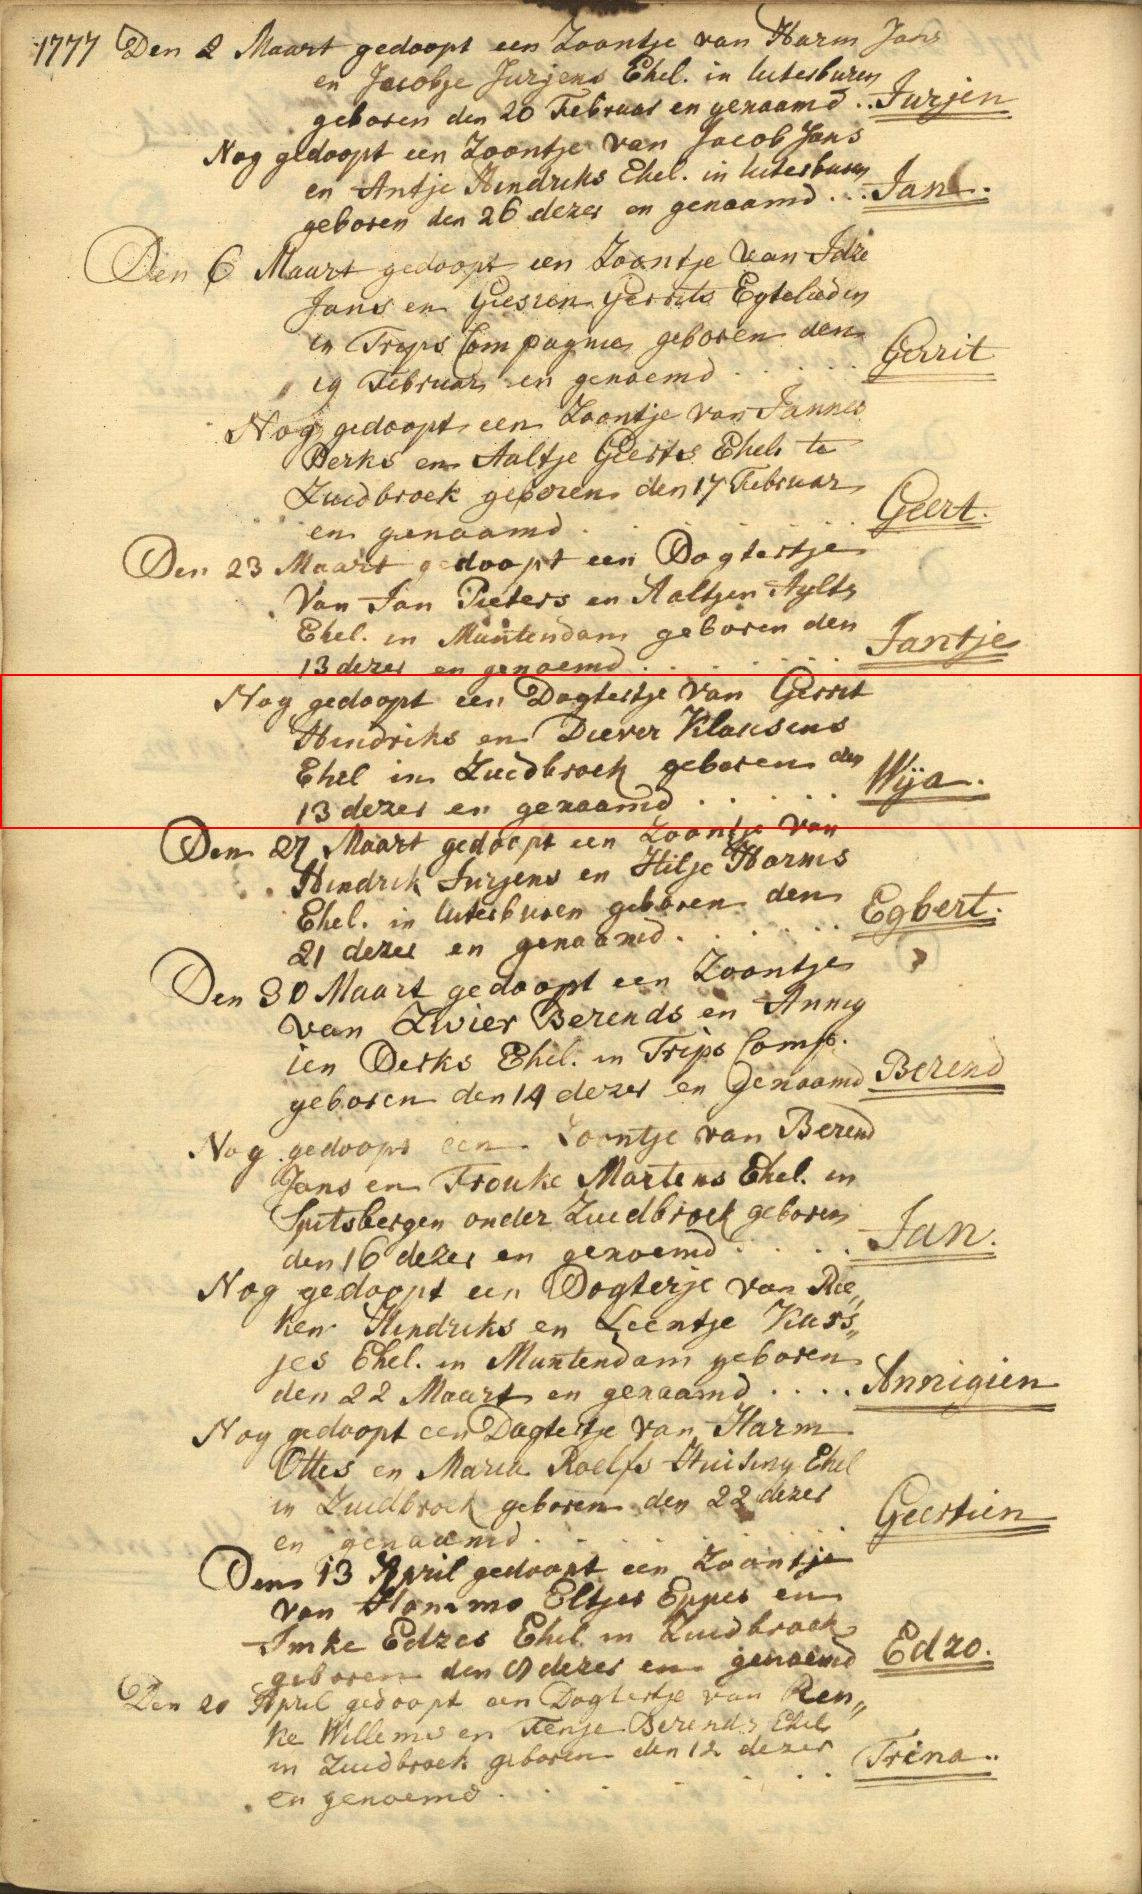 1777 Den 2 Maart gedoopt een Zoontje van Harm Jans
en Jacobje Jurjens Ehel. in uiterburen
geboren den 20 Februar en genaamd .. Jurjen
Nog gedoopt een Zoontje van Jacob Jans
en Antje Hindriks Ehel. in uiterburen
geboren den 26 dezer en genaamd ... Jan.
Den 6 Maart gedoopt een Zoontje van
Jans en Gerrits Egtelieden
in Trips Compagnie geboren den
19 Februar en genoemd . . . . . Gerrit
Nog gedoopt een Zoontje van Jannes
Derks en Aaltje Geerts Ehel. te
Zuidbroek geboren den 17 Februar
en genaamd . . . . . Geert.
Den 23 Maart gedoopt een Dogtertje
van Jan Pieters en Aaltjen Aylts
Ehel. in Muntendam geboren den
13 dezer en genoemd . . . . . Jantje
Nog gedoopt een Dogtertje van Gerrit
Hindriks en Diever Klaasens
Ehel in Zuidbroek geboren den
13 dezer en genaamd . . . . . Wija.
Den 27 Maart gedoopt een Zoontje van
Hindrik Jurjens en Hilje Harms
Ehel. in uiterburen geboren den
21 dezer en genaamd . . . . . Egbert.
Den 30 Maart gedoopt een Zoontje
van Zwier Berends en Annig
ien Derks Ehel. in Trips Comp.
geboren den 14 dezer en Genaamd Berend
Nog gedoopt een Zoontje van Berend
Jans en Frouke Martens Ehel. in
Spitsbergen onder Zuidbroek geboren
den 16 dezer en genoemd . . . . Jan.
Nog gedoopt een Dogterje van Rie„
ken Hindriks en Leentje Kars„
jes Ehel. in Muntendam geboren
den 22 Maart en genaamd .... Annigien
Nog gedoopt een Dogtertje van Harm
Ottes en Maria Roelfs Huising Ehel
in Zuidbroek geboren den 22 dezer
en genaamd . . . . . Geertien
Den 13 April gedoopt een Zoontje
van Hommo Eltjes Eppes en
Imke Edzes Ehel. in Zuidbroek
geboren den dezer en genoemd Edzo.
Den 20 April gedoopt een Dogtertje van Ren„
ke Willems en Fenje Berends Ehel
in Zuidbroek geboren den 12 dezer
en genoemd . . . . . Trina..